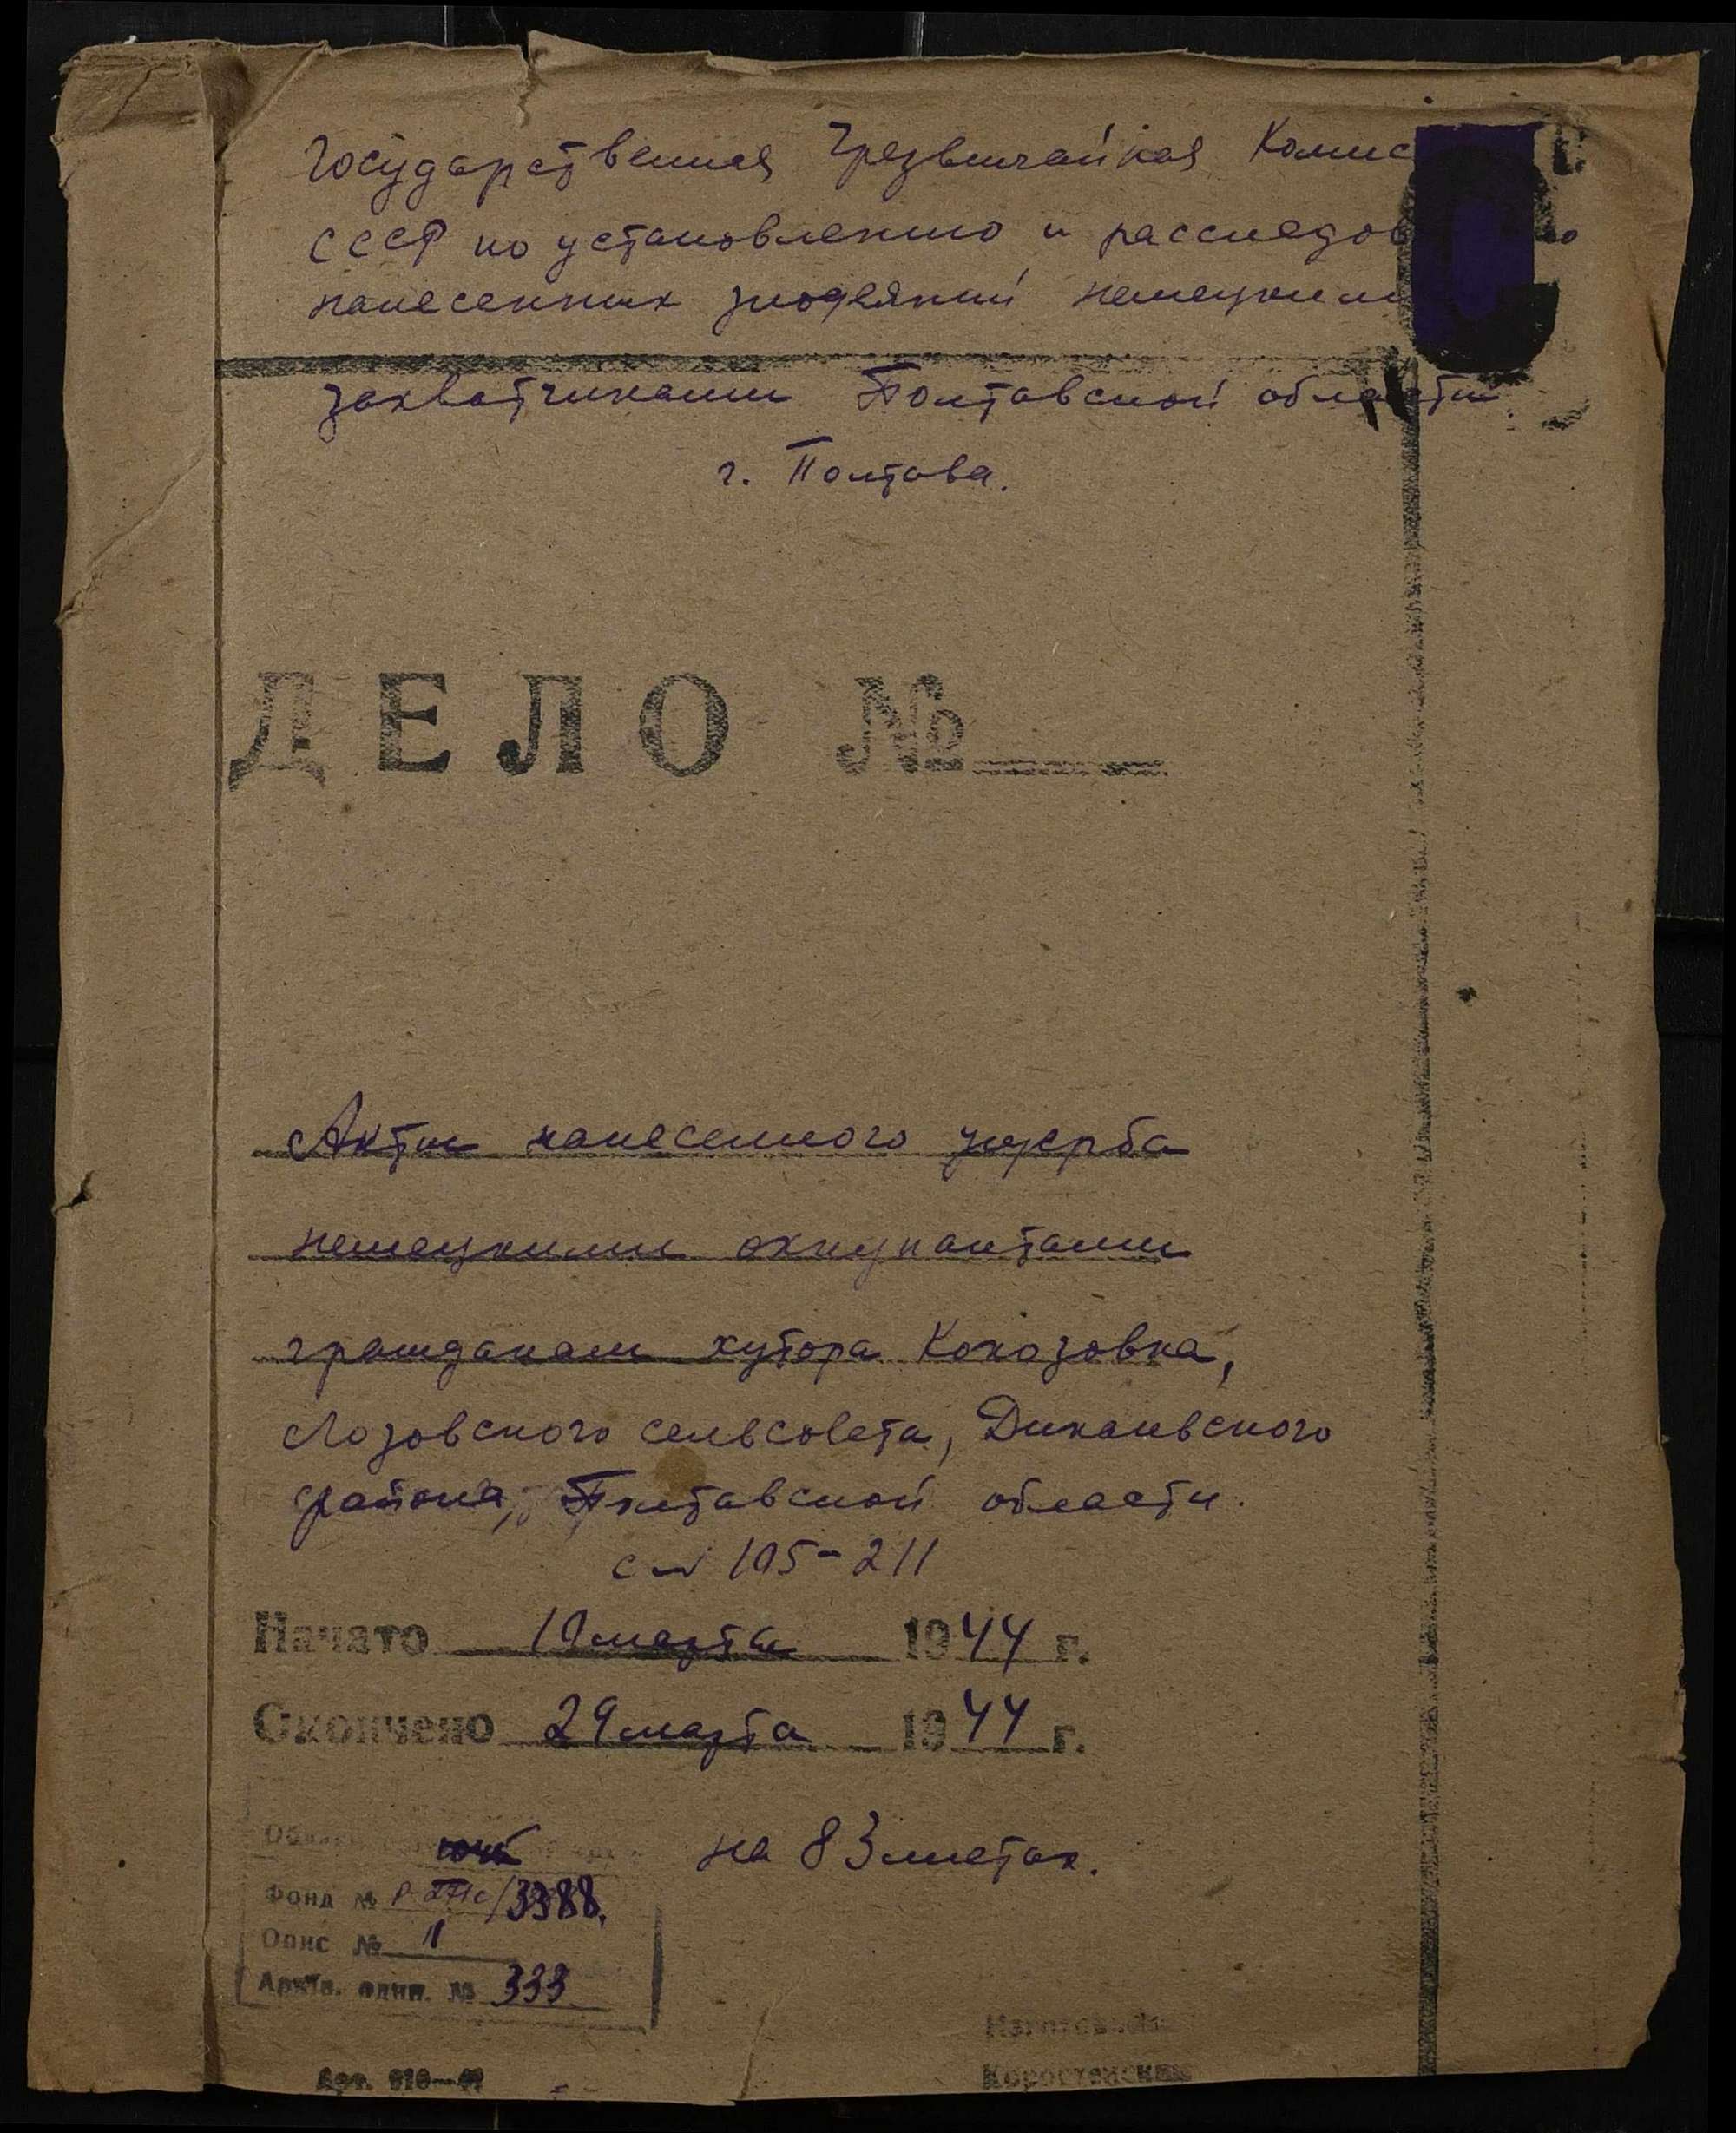 Государственная Чрезвычайная Комис
СССР по установлению и расследов ю
нанесенных злодеяний немецким
захватчиками Полтавской области.
г. Полтава.
ДЕЛО №
Акты нанесенного ущерба
немецкими оккупантами
гражданам хутора Коназовка,
Лозовского сельсовета, Диканьского
района, Полтавской области.
105-211
Начато 10 марта 1944 г.
Окончено 29 марта 1944 г.
на 83 листах.
Фонд № Р. /3388.
Опис № 11
Архів. один. № 333
Арт.
Коростенская